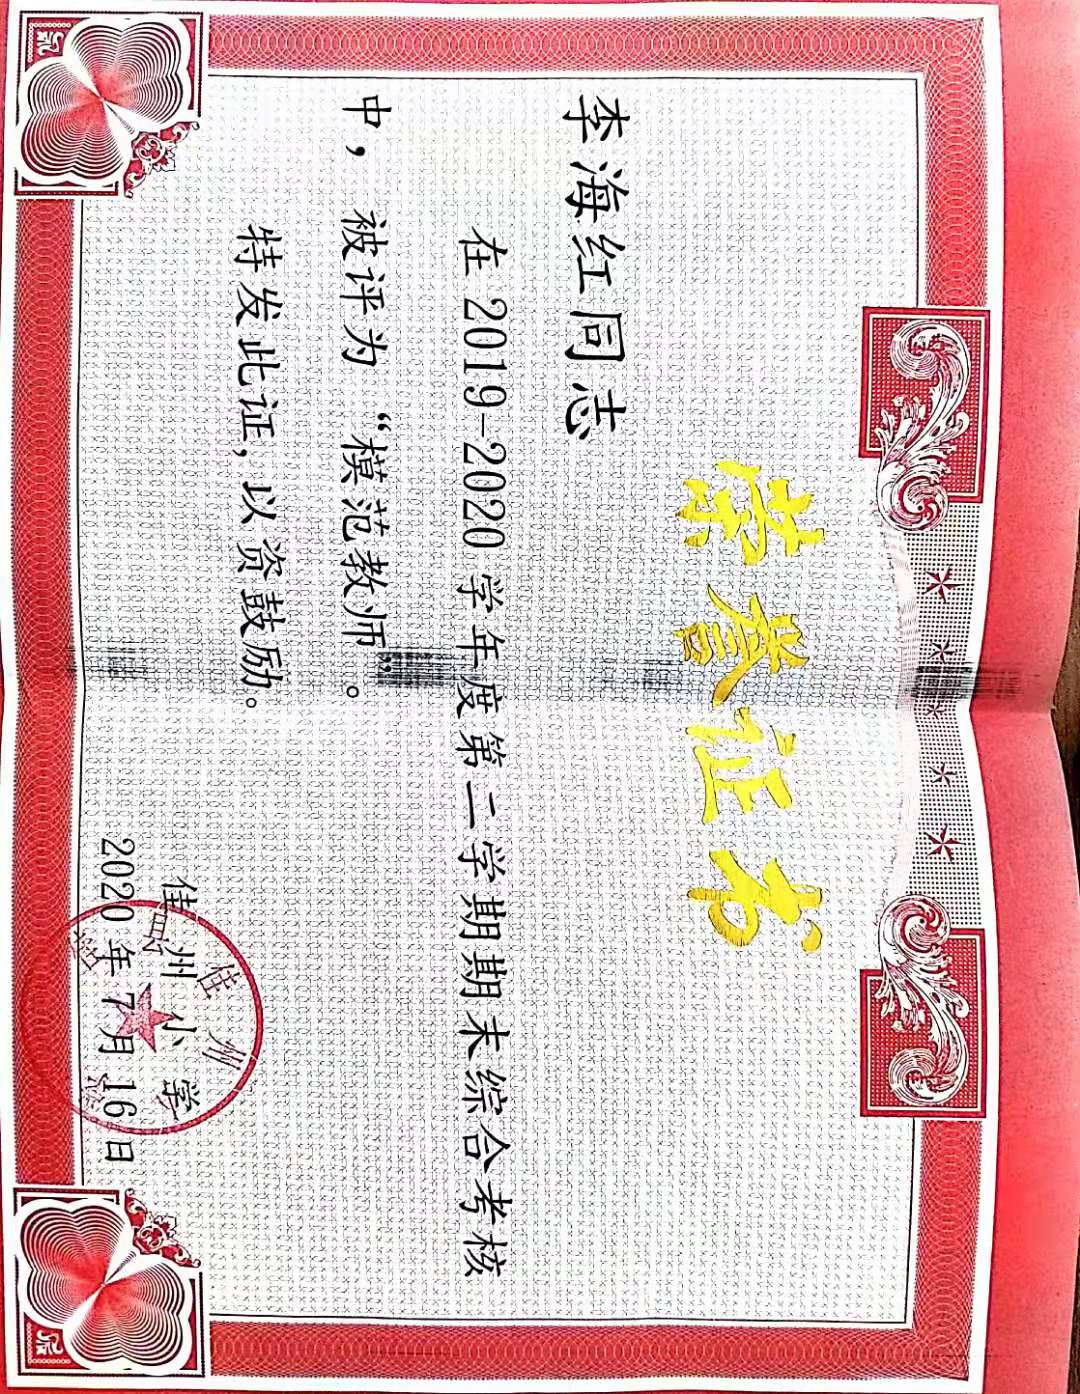 荣誉证书
李海红同志
在2019-2020学年度第二学期期末综合考核
中，被评为“模范教师”。
特发此证，以资鼓励。
佳州小学
2020年7月16日
佳州